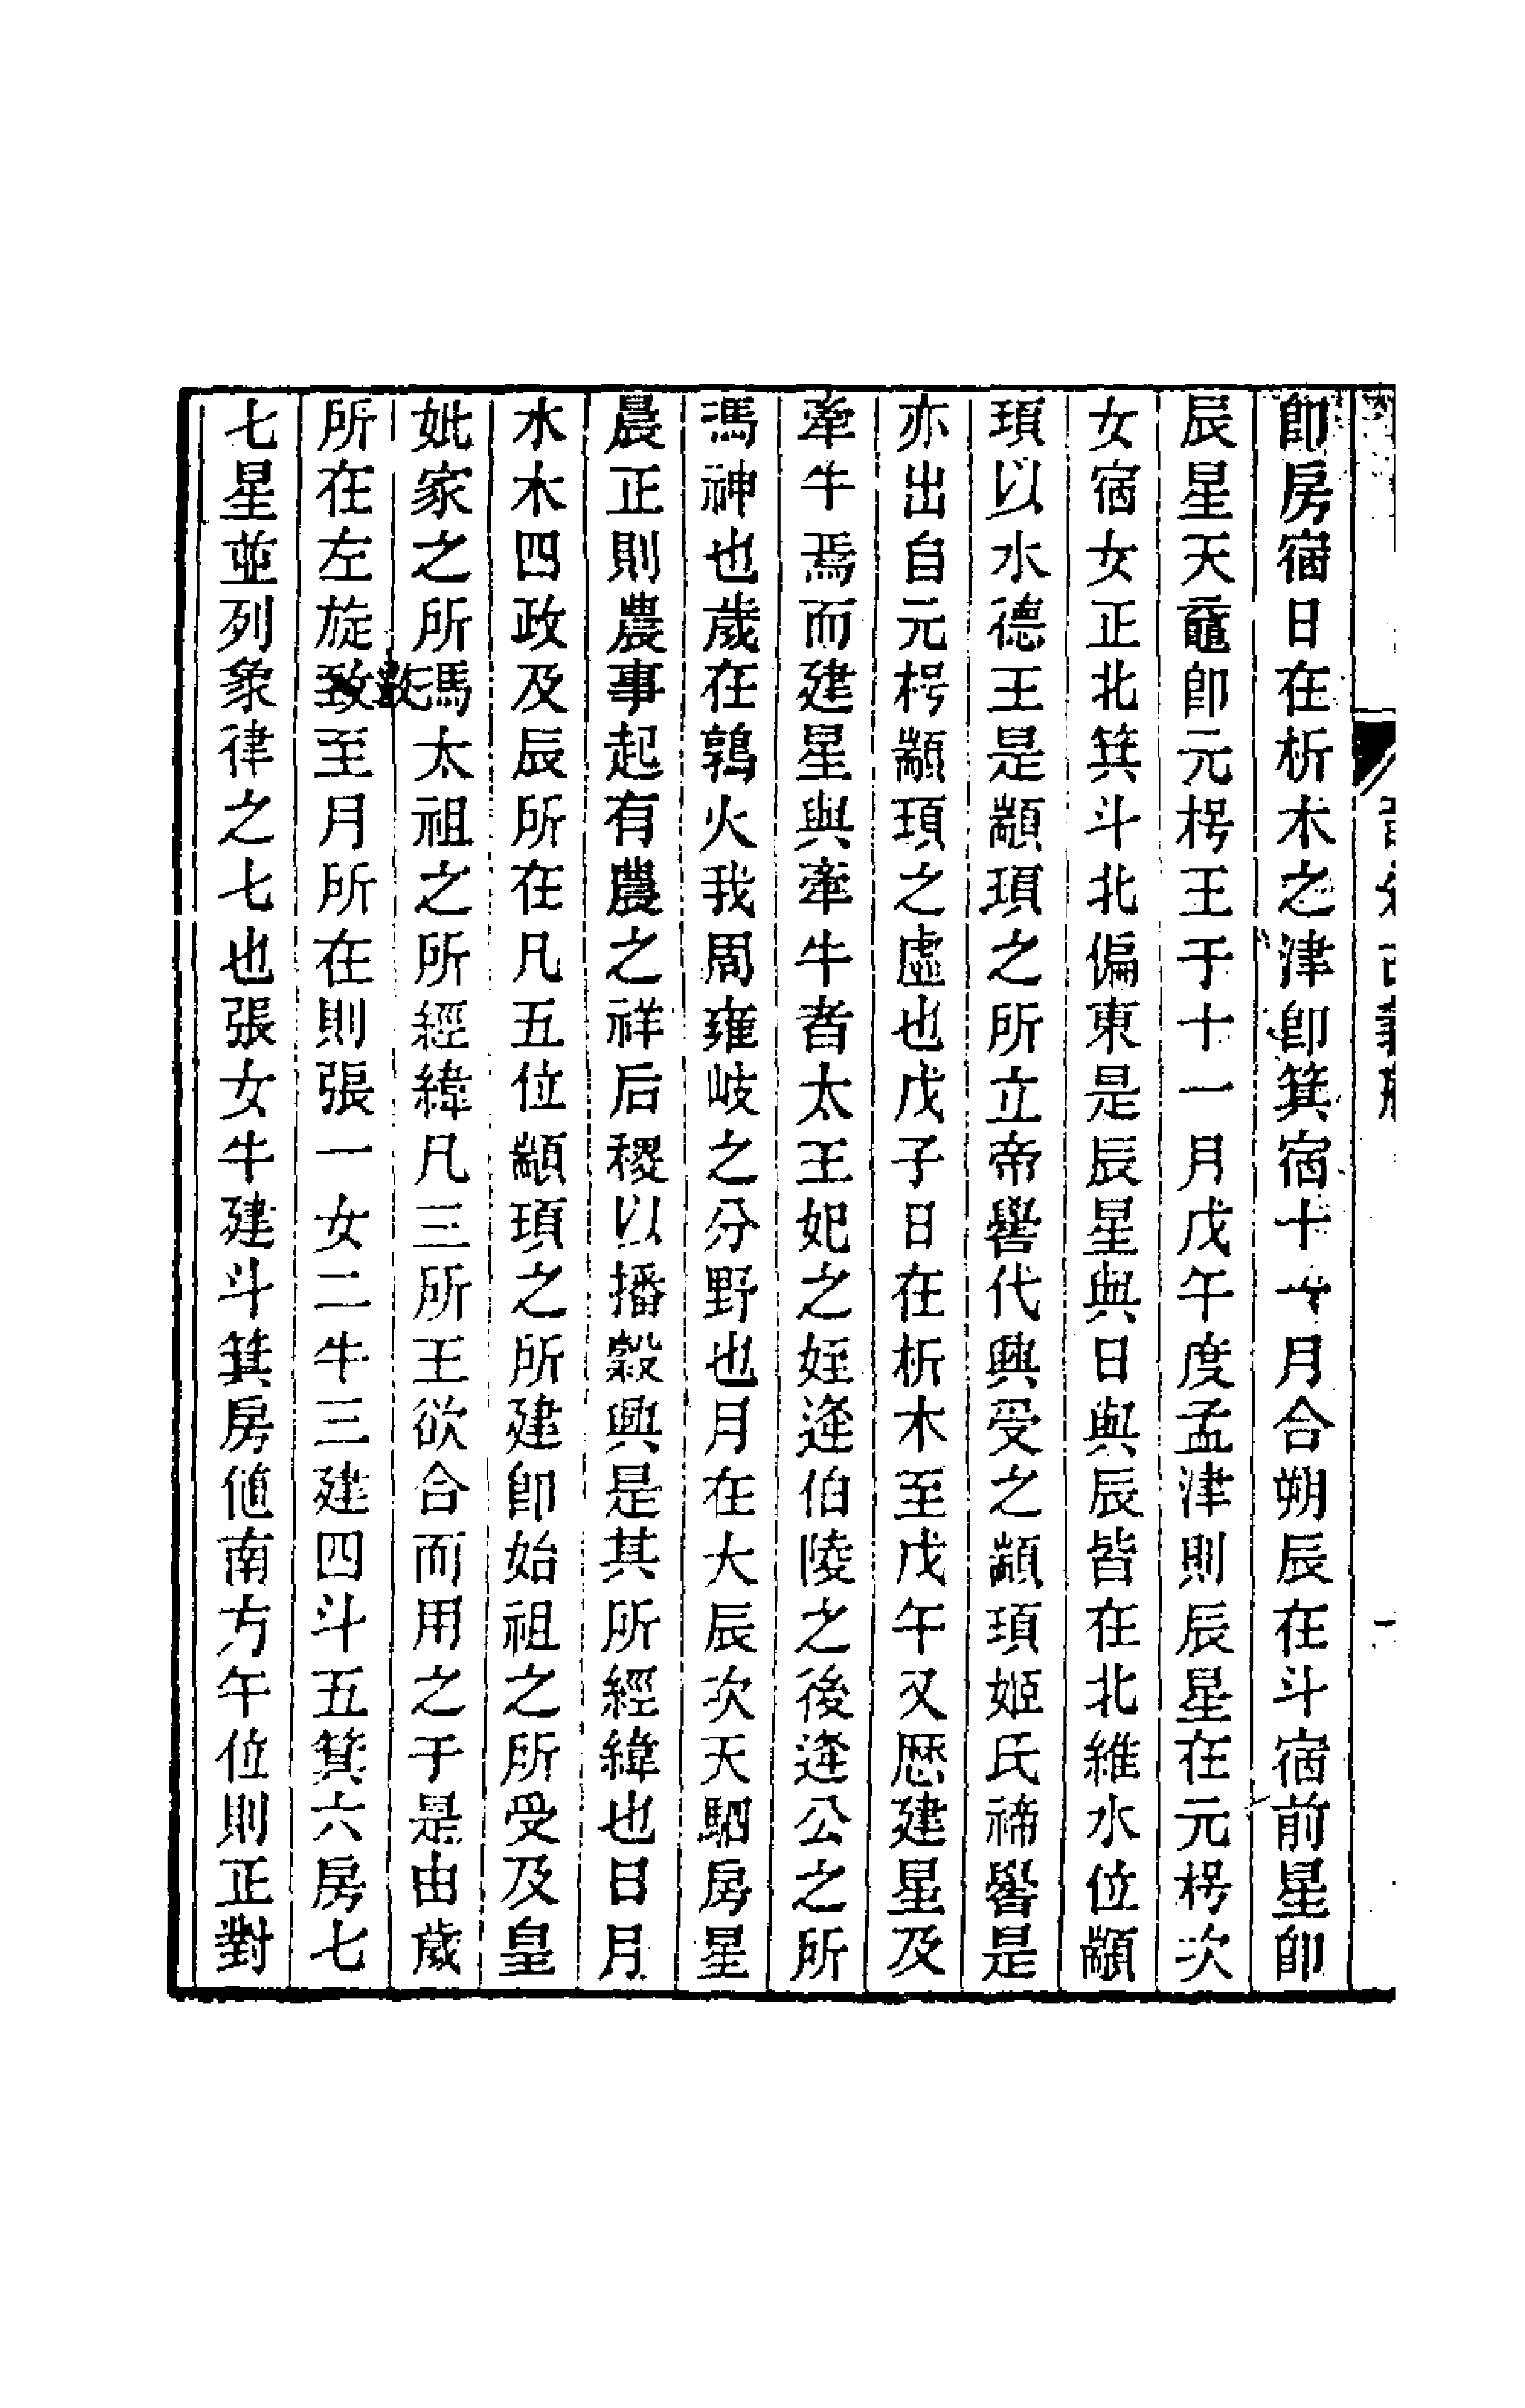 卽房宿日在析木之津卽箕宿十一月合朔辰在斗宿前星卽
辰星天黿卽元枵王于十一月戊午度孟津則辰星在元枵次
女宿女正北箕斗北偏東是辰星與日與辰皆在北維水位顓
頊以水德王是顓頊之所立帝嚳代興受之顓頊姬氏禘嚳是
亦出自元枵顓頊之虛也戊子日在析木至戊午又歷建星及
牽牛焉而建星與牽牛者太王妃之姪逄伯陵之後逄公之所
馮神也歲在鶉火我周雍岐之分野也月在大辰次天駟房星
晨正則農事起有農之祥后稷以播穀興是其所經緯也日月
水木四政及辰所在凡五位顓頊之所建卽始祖之所受及皇
妣家之所馮太祖之所經緯凡三所王欲合而用之于是由歲
所在左旋數至月所在則張一女二牛三建四斗五箕六房七
七星並列象律之七也張女牛建斗箕房値南方午位則正對